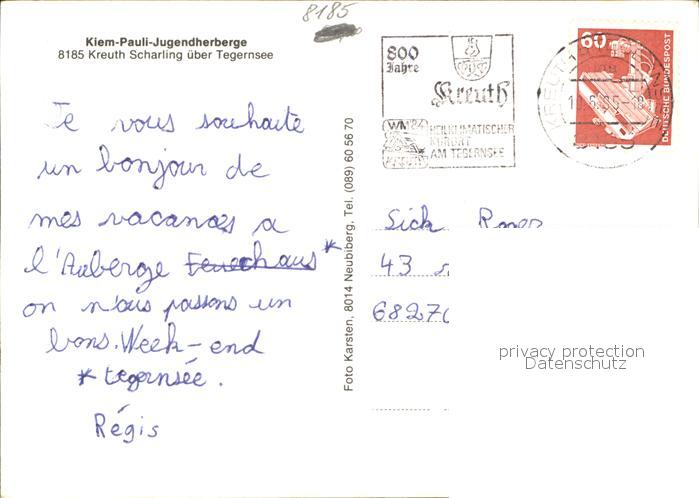 8185
Kiem-Pauli-Jugendherberge
8185 Kreuth Scharling über Tegernsee
Je vous souhaite
un bonjour de
mes vacances a
l'Auberge *
on n'ous passons un
bons. Week-end
* tegernsée.
Régis
Foto Karsten, 8014 Neubiberg, Tel. (089) 60 56 70
800
Jahre
Kreuth
HEILKLIMATISCHER
KURORT
AM TEGERNSEE
60
DEUTSCHE BUNDESPOST
Sick
43
6827
privacy protection
Datenschutz